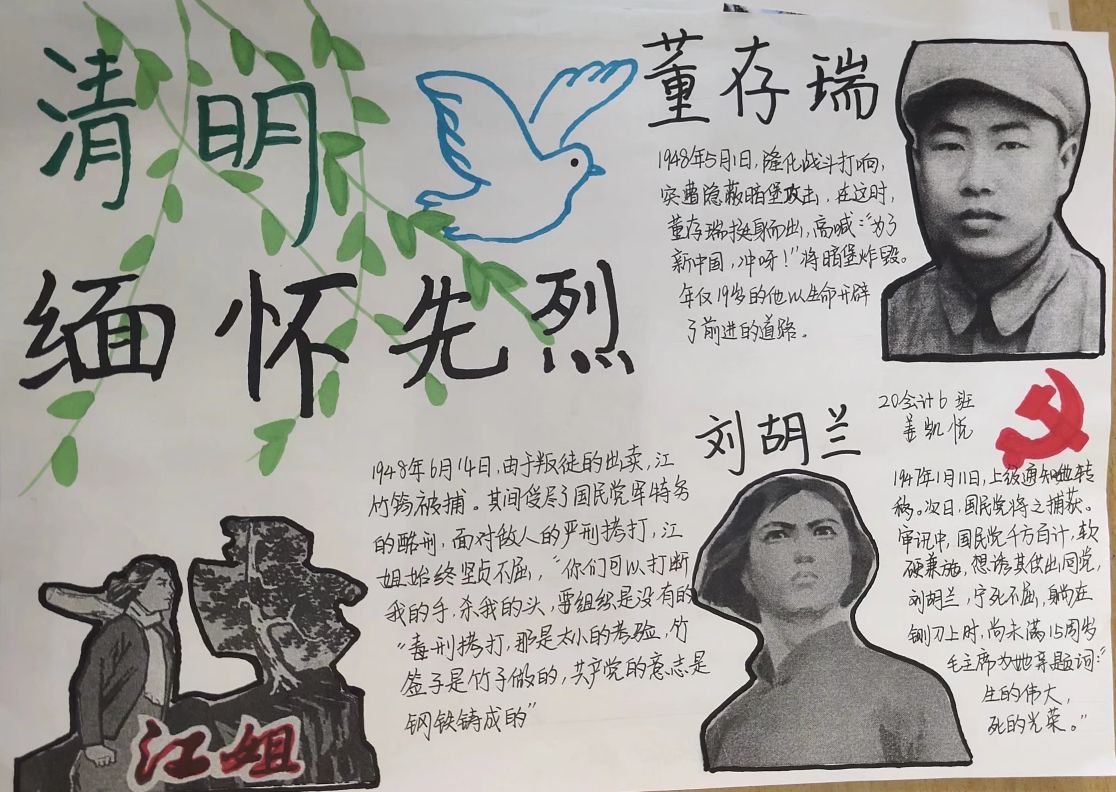 清明
缅怀先烈
董存瑞
1948年5月1日,隆化战斗打响,
突遭隐蔽暗堡攻击,在这时,
董存瑞挺身而出,高喊:“为了
新中国,冲呀!”将暗堡炸毁。
年仅19岁的他以生命开辟
了前进的道路。
20会计6班
姜凯悦
刘胡兰
1947年1月11日,上级通知她转
移。次日,国民党将之捕获。
审讯中,国民党千方百计,软
硬兼施,想诱其供出同党,
刘胡兰,宁死不屈,躺在
铡刀上时,尚未满15周岁
毛主席为她亲题词:“
生的伟大,
死的光荣。”
1948年6月14日,由于叛徒的出卖,江
竹筠被捕。其间受尽了国民党军特务
的酷刑,面对敌人的严刑拷打,江
姐始终坚贞不屈,“你们可以打断
我的手,杀我的头,要组织是没有的
“毒刑拷打,那是太小的考验,竹
签子是竹子做的,共产党的意志是
钢铁铸成的”
江姐